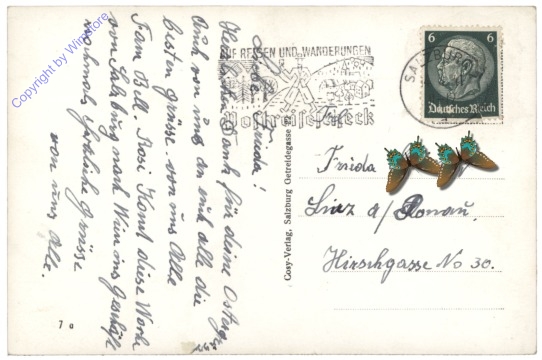 Copyright by Winstore
AUF REISEN UND WANDERUNGEN
Postreisescheck
SALZBURG
6 6
Deutsches Reich
Liebe Frieda!
Herzlichen Dank für deine Ostergrüsse
Auch von uns an euch alle die
besten Grüsse von uns Alle
Fam. Bell. Rosi Komt diese Woche
von Salzburg nach Wien ins Geschäft
nochmals fröhliche Grüsse
von uns Alle.
7 a
Cosy-Verlag, Salzburg Getreidegasse
Frieda
Linz a/Donau
Hirschgasse No 30.